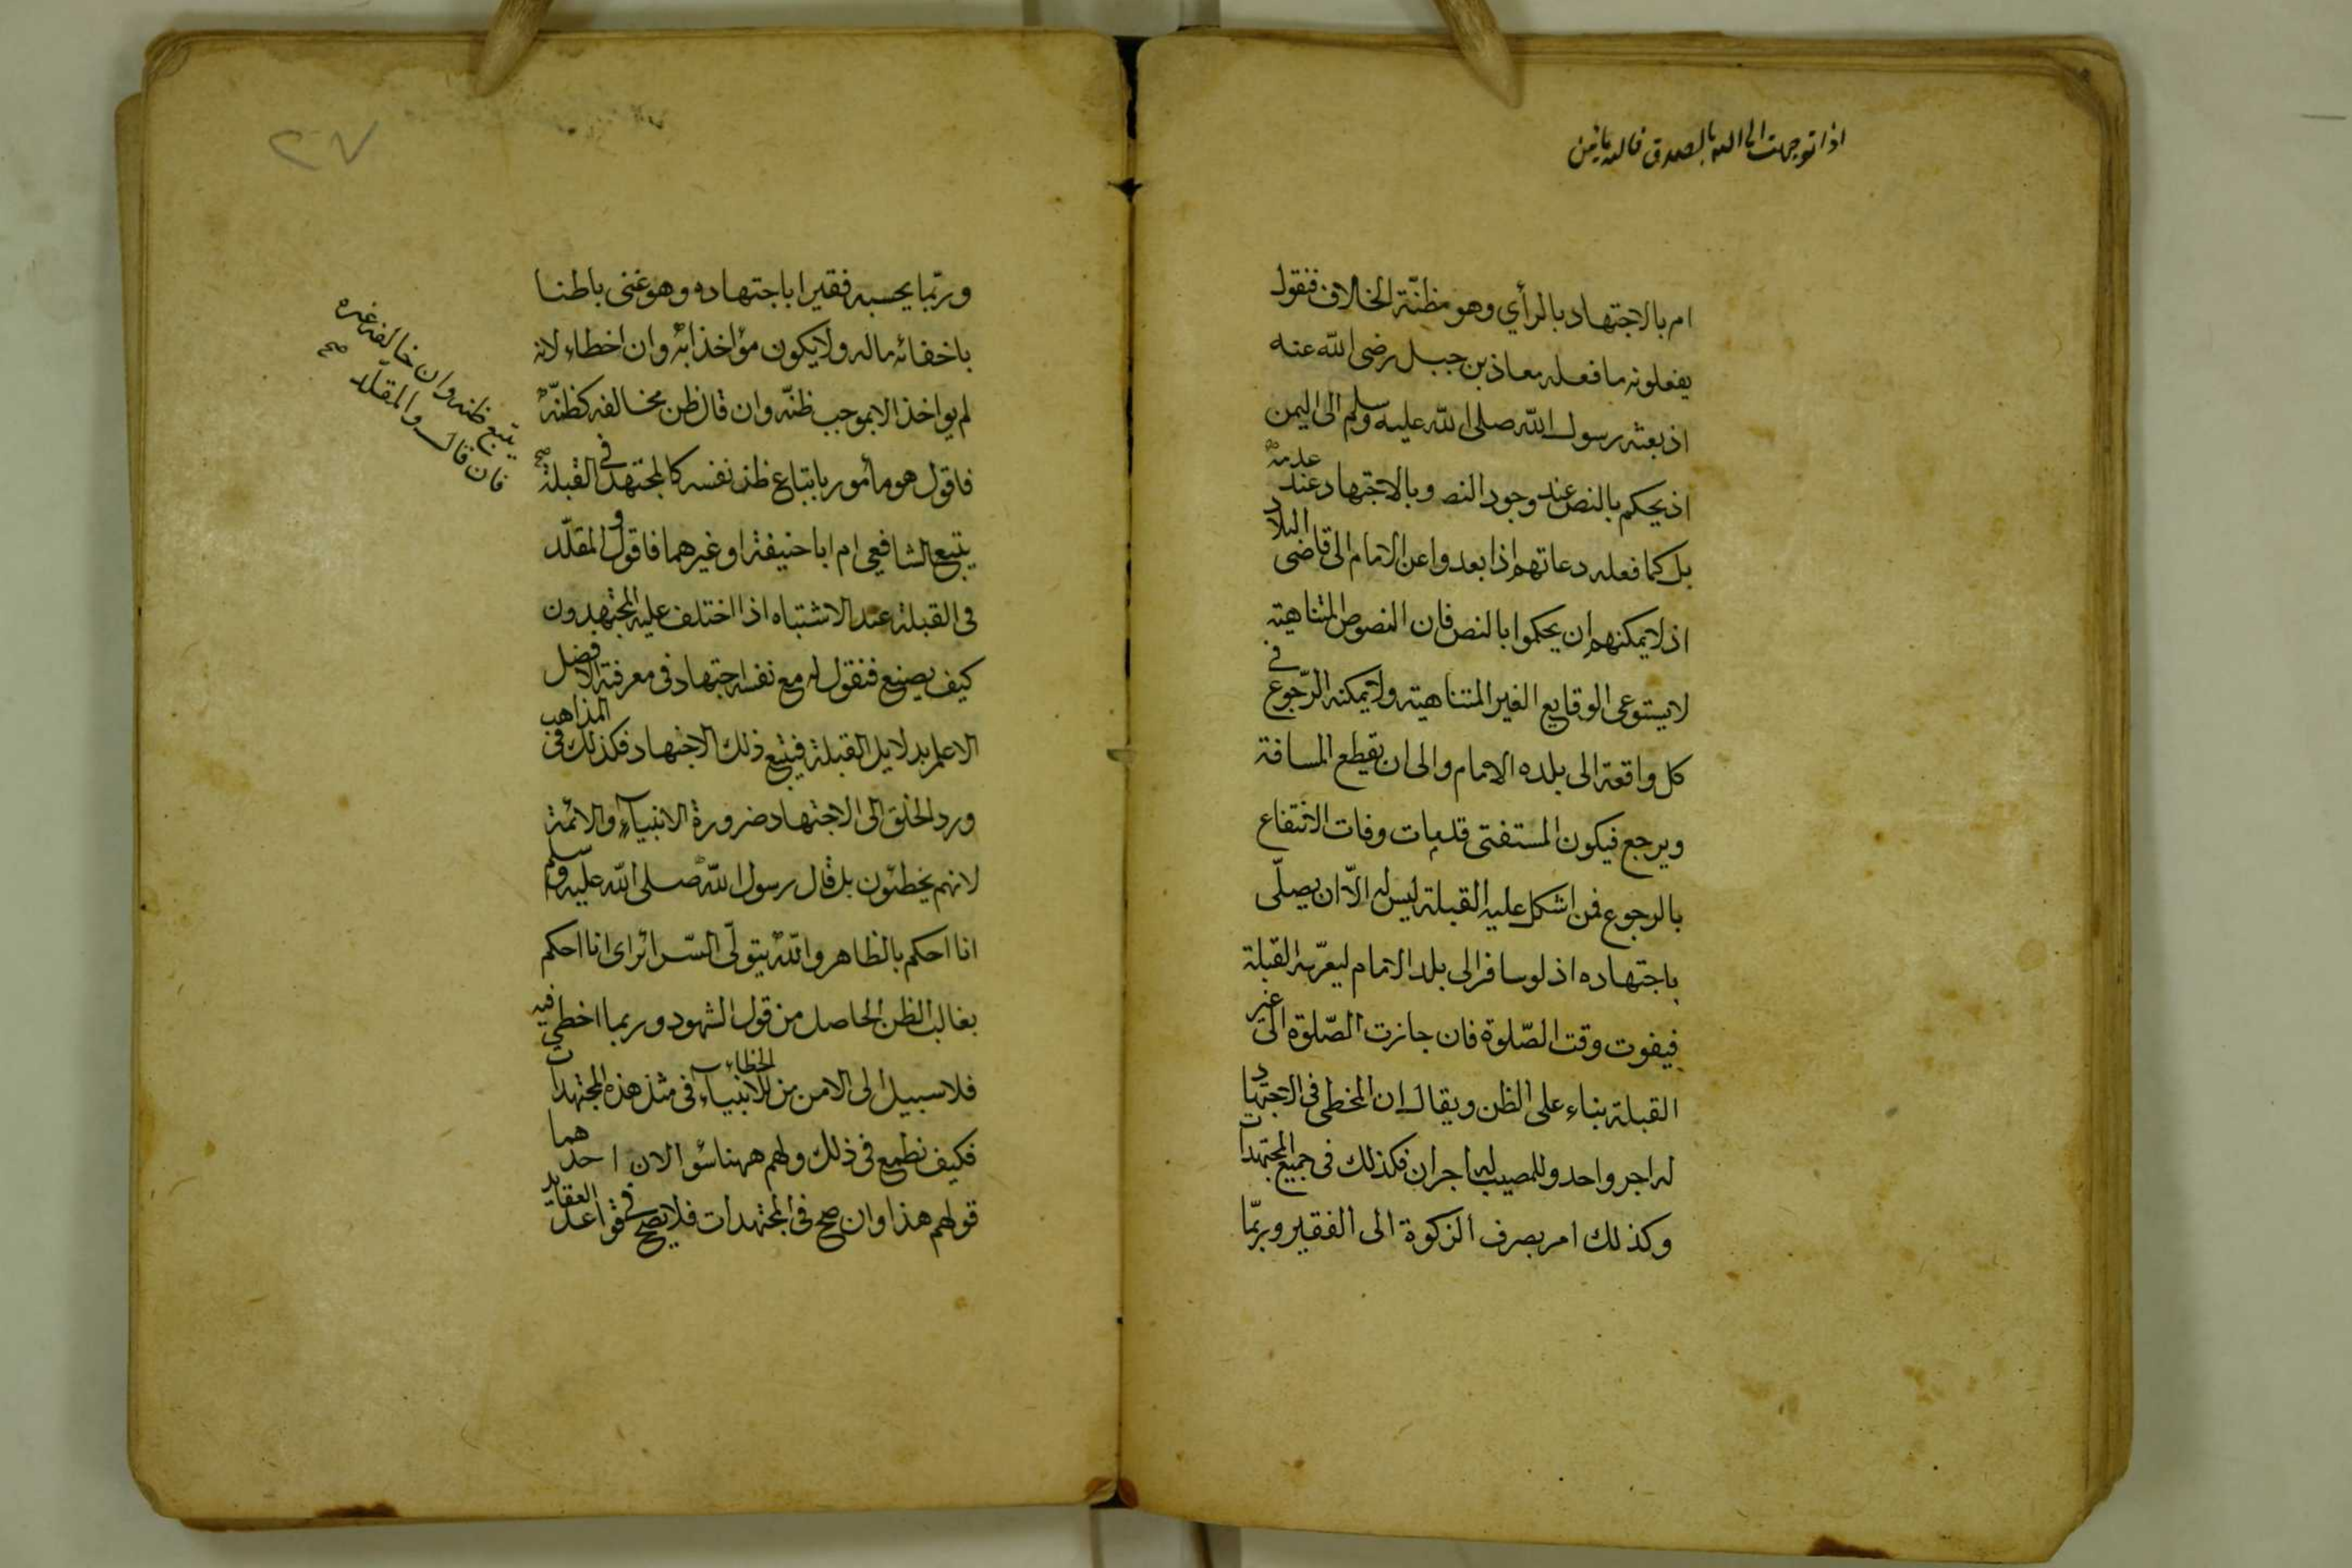 اذا توجهت الى الله بالصدق فالله
ام بالاجتهاد بالرأي وهو مظنّة الخلاف فنقول
يفعلونه ما فعله معاذ بن جبل رضى الله عنه
اذ بعثه رسول الله صلى الله عليه وسلم الى اليمن
اذ يحكم بالنص عند وجود النص وبالاجتهاد عند عدمه
بل كما فعله دعاتهم اذا بعدوا عن الامام الى قاضى البلاد
اذ لا يمكنهم ان يحكموا بالنص فان النصوص المتناهية
لا يستوعى الوقايع الغير المتناهية ولا يمكنه الرّجوع في
كل واقعة الى بلده الامام والى ان يقطع المسافة
ويرجع فيكون المستفتى قد مات وفات الانتفاع
بالرجوع فمن اشكل عليه القبلة ليس له الاّ ان يصلّى
باجتهاده اذ لو سافر الى بلد الامام ليعرّفه القبلة
فيفوت وقت الصّلوة فان جازت الصّلوة الى غير
القبلة بناء على الظن ويقال ان المخطى في الاجتهاد
له اجر واحد وللمصيب له اجران فكذلك فى جميع المجتهدات
وكذلك امر بصرف الزكوة الى الفقير وربّما
٢٧
وربّما يحسبه فقيرا باجتهاده وهو غنى باطنا
باخفائه ماله ولا يكون مؤاخذا به وان اخطاء لانه
لم يواخذ الا بموجب ظنّه وان قال ظن مخالفه كظنّه
فاقول هو مأمور باتباع ظن نفسه كالمجتهد في القبلة
يتبع ظنه وان خالفه غيره
فان قال والمقلّد صح
يتبع الشافعي ام ابا حنيفة او غيرهما فاقول والمقلّد
فى القبلة عند الاشتباه اذا اختلف عليه المجتهدون
كيف يصنع فنقول له مع نفسه اجتهاد فى معرفة الافضل
الاعلم بدلايل القبلة فيتبع ذلك الاجتهاد فكذلك فى المذاهب
ورد الخلق الى الاجتهاد ضرورة الانبياء والائمة
لانهم يخطئون بل قال رسول الله صلى الله عليه وسلم
انا احكم بالظاهر والله يتولّى السّرائر اى انا احكم
بغالب الظن الحاصل من قول الشهود وربما اخطى فيه
فلا سبيل الى الامن من الخطاء للانبياء فى مثل هذه المجتهدات
فكيف نطمع فى ذلك ولهم ههنا سؤالان احدهما
قولهم هذا وان صح فى المجتهدات فلا يصح فى قواعد العقايد